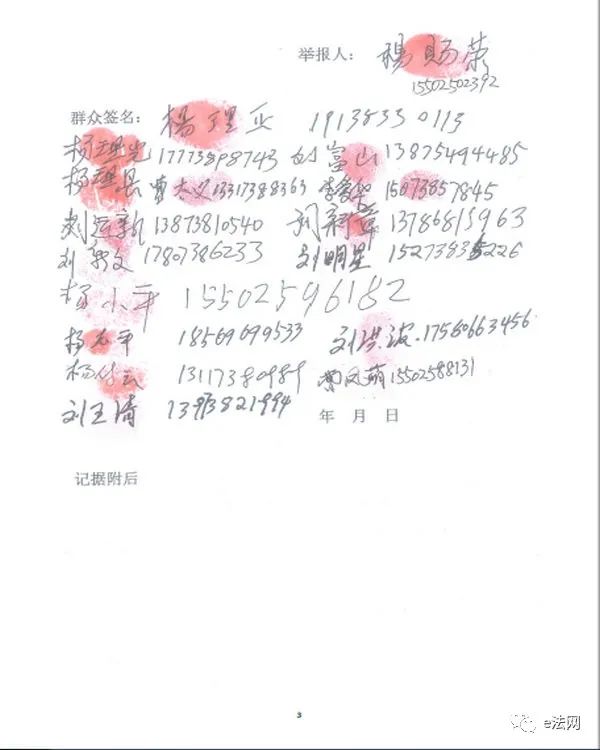 举报人： 楊赐荣
15502502392
群众签名： 楊理正 1913833 0113
杨理光 17773898743 富山 13875494485
杨理长 曹大义 13317388363 李 华 15073857845
刘运新 13873810540 刘新章 13786815963
刘 文 17807386233 刘明星 15273835226
杨小平 15502596182
杨先平 18569699533 刘洪波 17560663456
杨 云 13117380989 曹 15502588131
刘王清 13973821994 年 月 日
记据附后
3
e法网